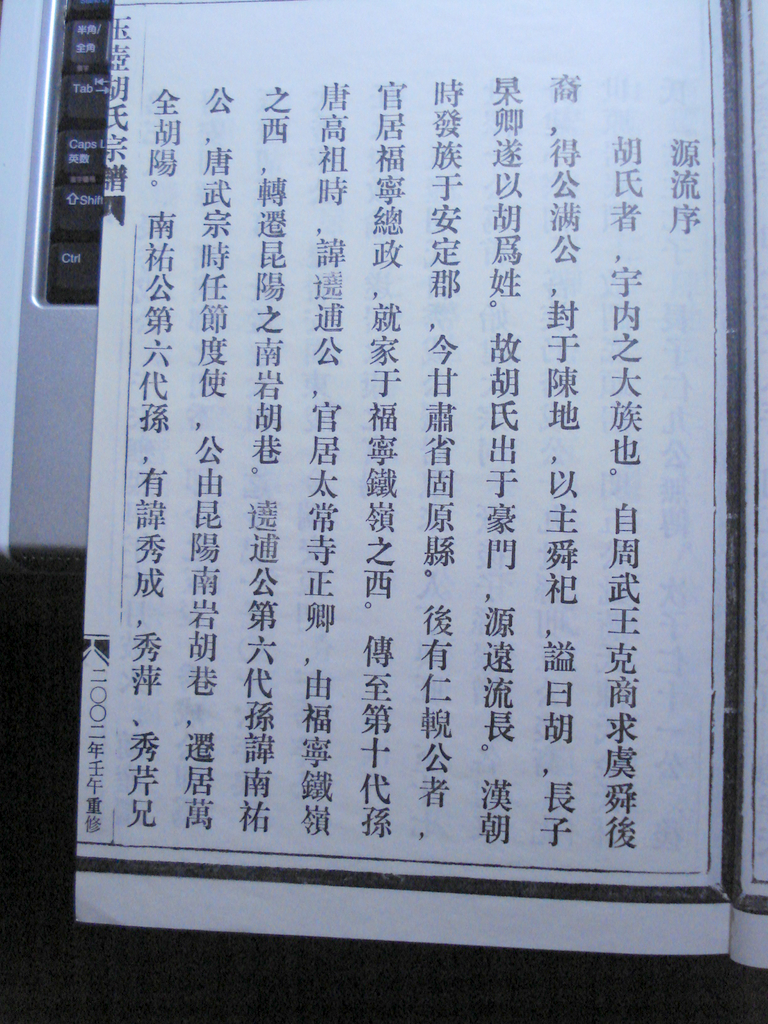 源流序
胡氏者，宇内之大族也。自周武王克商求虞舜後
裔，得公满公，封于陳地，以主舜祀，謚曰胡，長子
杲卿遂以胡爲姓。故胡氏出于豪門，源遠流長。漢朝
時發族于安定郡，今甘肅省固原縣。後有仁輗公者，
官居福寧總政，就家于福寧鐵嶺之西。傳至第十代孫
唐高祖時，諱遶逋公，官居太常寺正卿，由福寧鐵嶺
之西，轉遷昆陽之南岩胡巷。遶逋公第六代孫諱南祐
公，唐武宗時任節度使，公由昆陽南岩胡巷，遷居萬
全胡陽。南祐公第六代孫，有諱秀成，秀萍、秀芹兄
玉壺胡氏宗譜
二〇〇二年壬午重修
半角/
全角
Tab
Caps L
英数
Shift
Ctrl